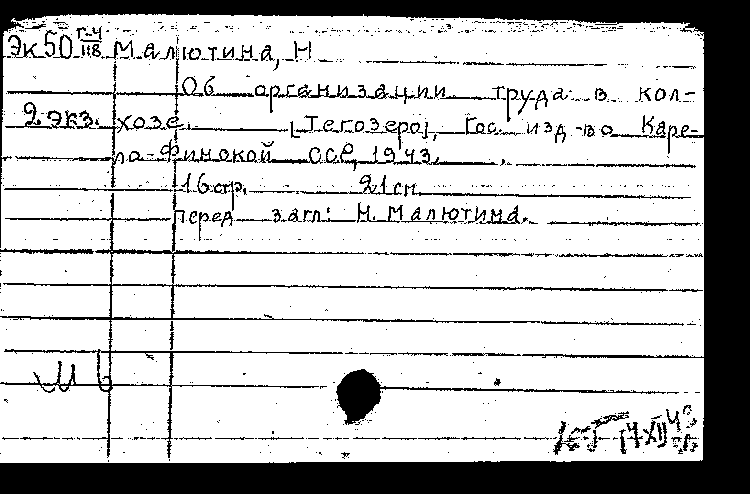 Эк50 Г-4/118 Малютина, Н
Об организации труда в кол-
2 экз. хозе. [Тегозеро], Гос. изд-во Каре-
ло-Финской ССР, 1943.
16 стр. 21 см.
Перед загл: Н. Малютина.